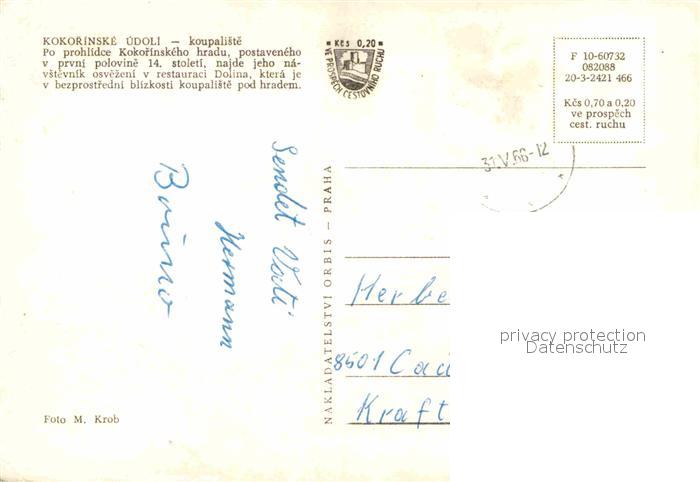 KOKOŘÍNSKÉ ÚDOLÍ — koupaliště
Po prohlídce Kokořínského hradu, postaveného
v první polovině 14. století, najde jeho ná-
vštěvník osvěžení v restauraci Dolina, která je
v bezprostřední blízkosti koupaliště pod hradem.
Kčs 0,20
VE PROSPĚCH CESTOVNÍHO RUCHU
F 10-60732
082088
20-3-2421 466
Kčs 0,70 a 0,20
ve prospěch
cest. ruchu
31.V.66-12
Sendet Vati
Hermann
NAKLADATELSTVÍ ORBIS — PRAHA
Herbe
8501 Cad
Kraft
privacy protection
Datenschutz
Foto M. Krob